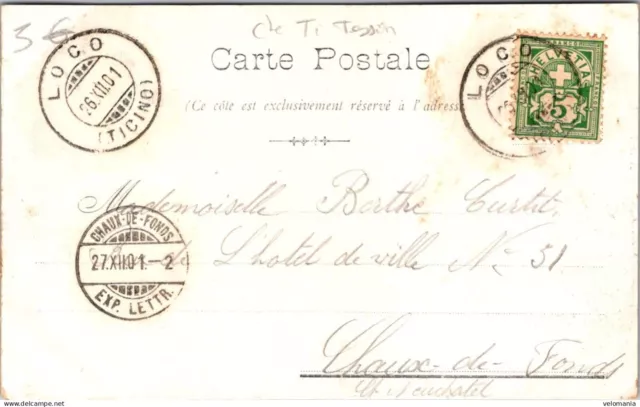 3 €
Cte Ti Tessin
LOCO
26.XII.01
(TICINO)
Carte Postale
(Ce côté est exclusivement réservé à l'adresse
LOCO
FRANCO
HELVETIA
5
Mademoiselle Berthe
CHAUX-DE-FONDS
27.XII.01.-2
EXP. LETTR.
de L'hôtel de ville No 51
Chaux-de-Fonds
Ct Neuchatel
delcampe.net
velomania